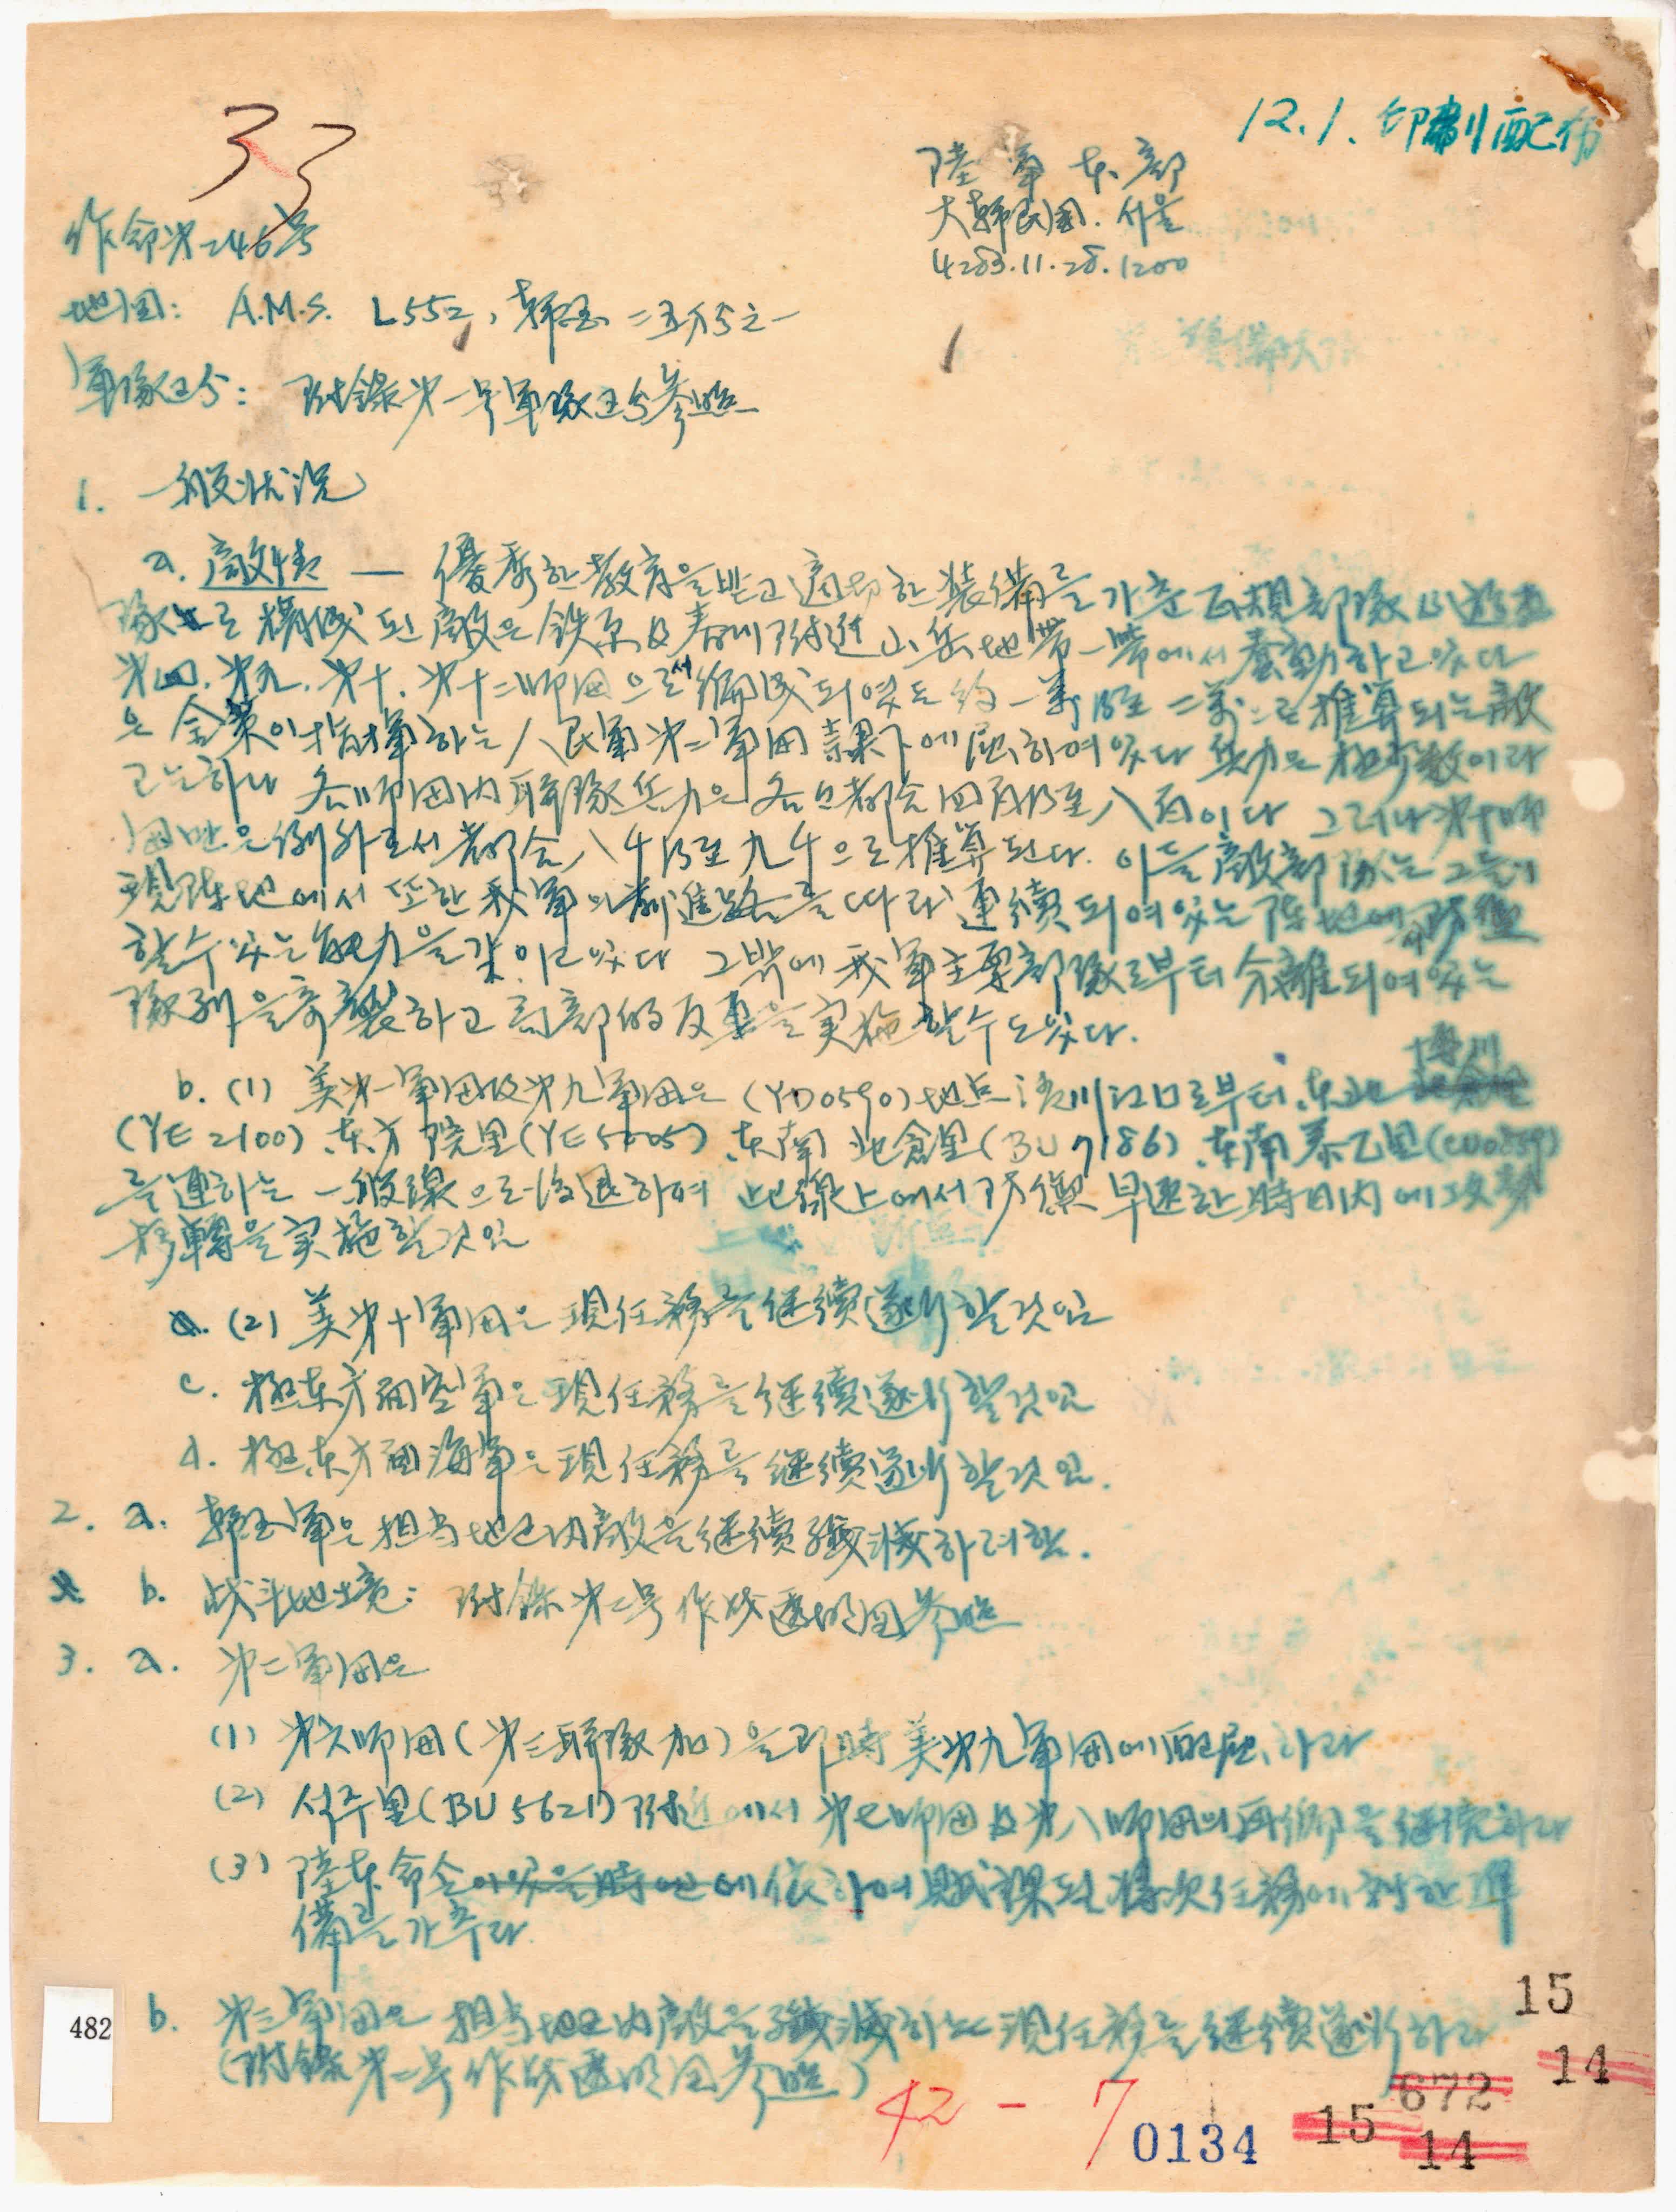 12.1. 印刷配布
33
陸軍本部
大韓民国. 서울
4283.11.28.1200
作命第二46号
地図: A.M.S. L552, 韓国 二五万分之一
軍隊区分: 附錄 第一号 軍隊区分 参照
1. 一般状況
a. 敵情 — 優秀한 教育을 받고 適切한 装備를 가춘 正規部隊 및
隊로 構成된 敵은 鉄原 及 春川 附近 山岳地帯 一帯에서 蠢動하고 있다
第四. 第九. 第十. 第十二師団으로서 編成되여있는 約 一萬乃至 二萬으로 推算되는 敵
은 金策이 指揮하는 人民軍 第二軍団 隷下에 属하여있다 兵力은 極少数이라
고는하나 各師団内 聯隊兵力은 各己 都合 四百乃至 八百이다 그러나 第十師
団만은 例外로서 都合 八千乃至 九千으로 推算된다. 이들 敵部隊는 그들의
現陣地에서 또한 我軍의 前進路를 따라 連續되여있는 陣地에서 防禦
할수있는 能力을 갖이고있다 그밖에 我軍主要部隊로부터 分離되여있는
隊列을 奇襲하고 局部的 反擊을 実施할수도있다.
b. (1) 美第一軍団及第九軍団은 (YD0590)地点 清川江口로부터 東北 博川
(YE2100) 東方 院里(YE5005) 東南 北倉里(BU7186) 東南 泰乙里(CU0859)
를 連하는 一般線으로 後退하며 此線上에서 防禦 早速한 時日内에 攻勢
移轉을 実施할것임
(2) 美第十軍団은 現任務를 継續遂行할것임
c. 極東方面空軍은 現任務를 継續遂行할것임
d. 極東方面海軍은 現任務를 継續遂行할것임.
2. a. 韓国軍은 担当地区内 敵을 継續 殲滅하려함.
b. 战斗地境: 附錄 第二号 作战透明図 参照
3. a. 第二軍団은
(1) 第六師団(第三聯隊 加)을 即時 美第九軍団에 配属하라
(2) 석주里(BU5621) 附近에서 第七師団 及 第八師団의 再編을 継續하라
(3) 陸本命令에 依하여 賦課된 将次任務에 対한 準
備를 가추라
b. 第三軍団은 担当地区内 敵을 殲滅하는 現任務를 継續遂行하라
(附錄 第二号 作战透明図 参照)
482
15
14
672
15
14
42 - 7
0134